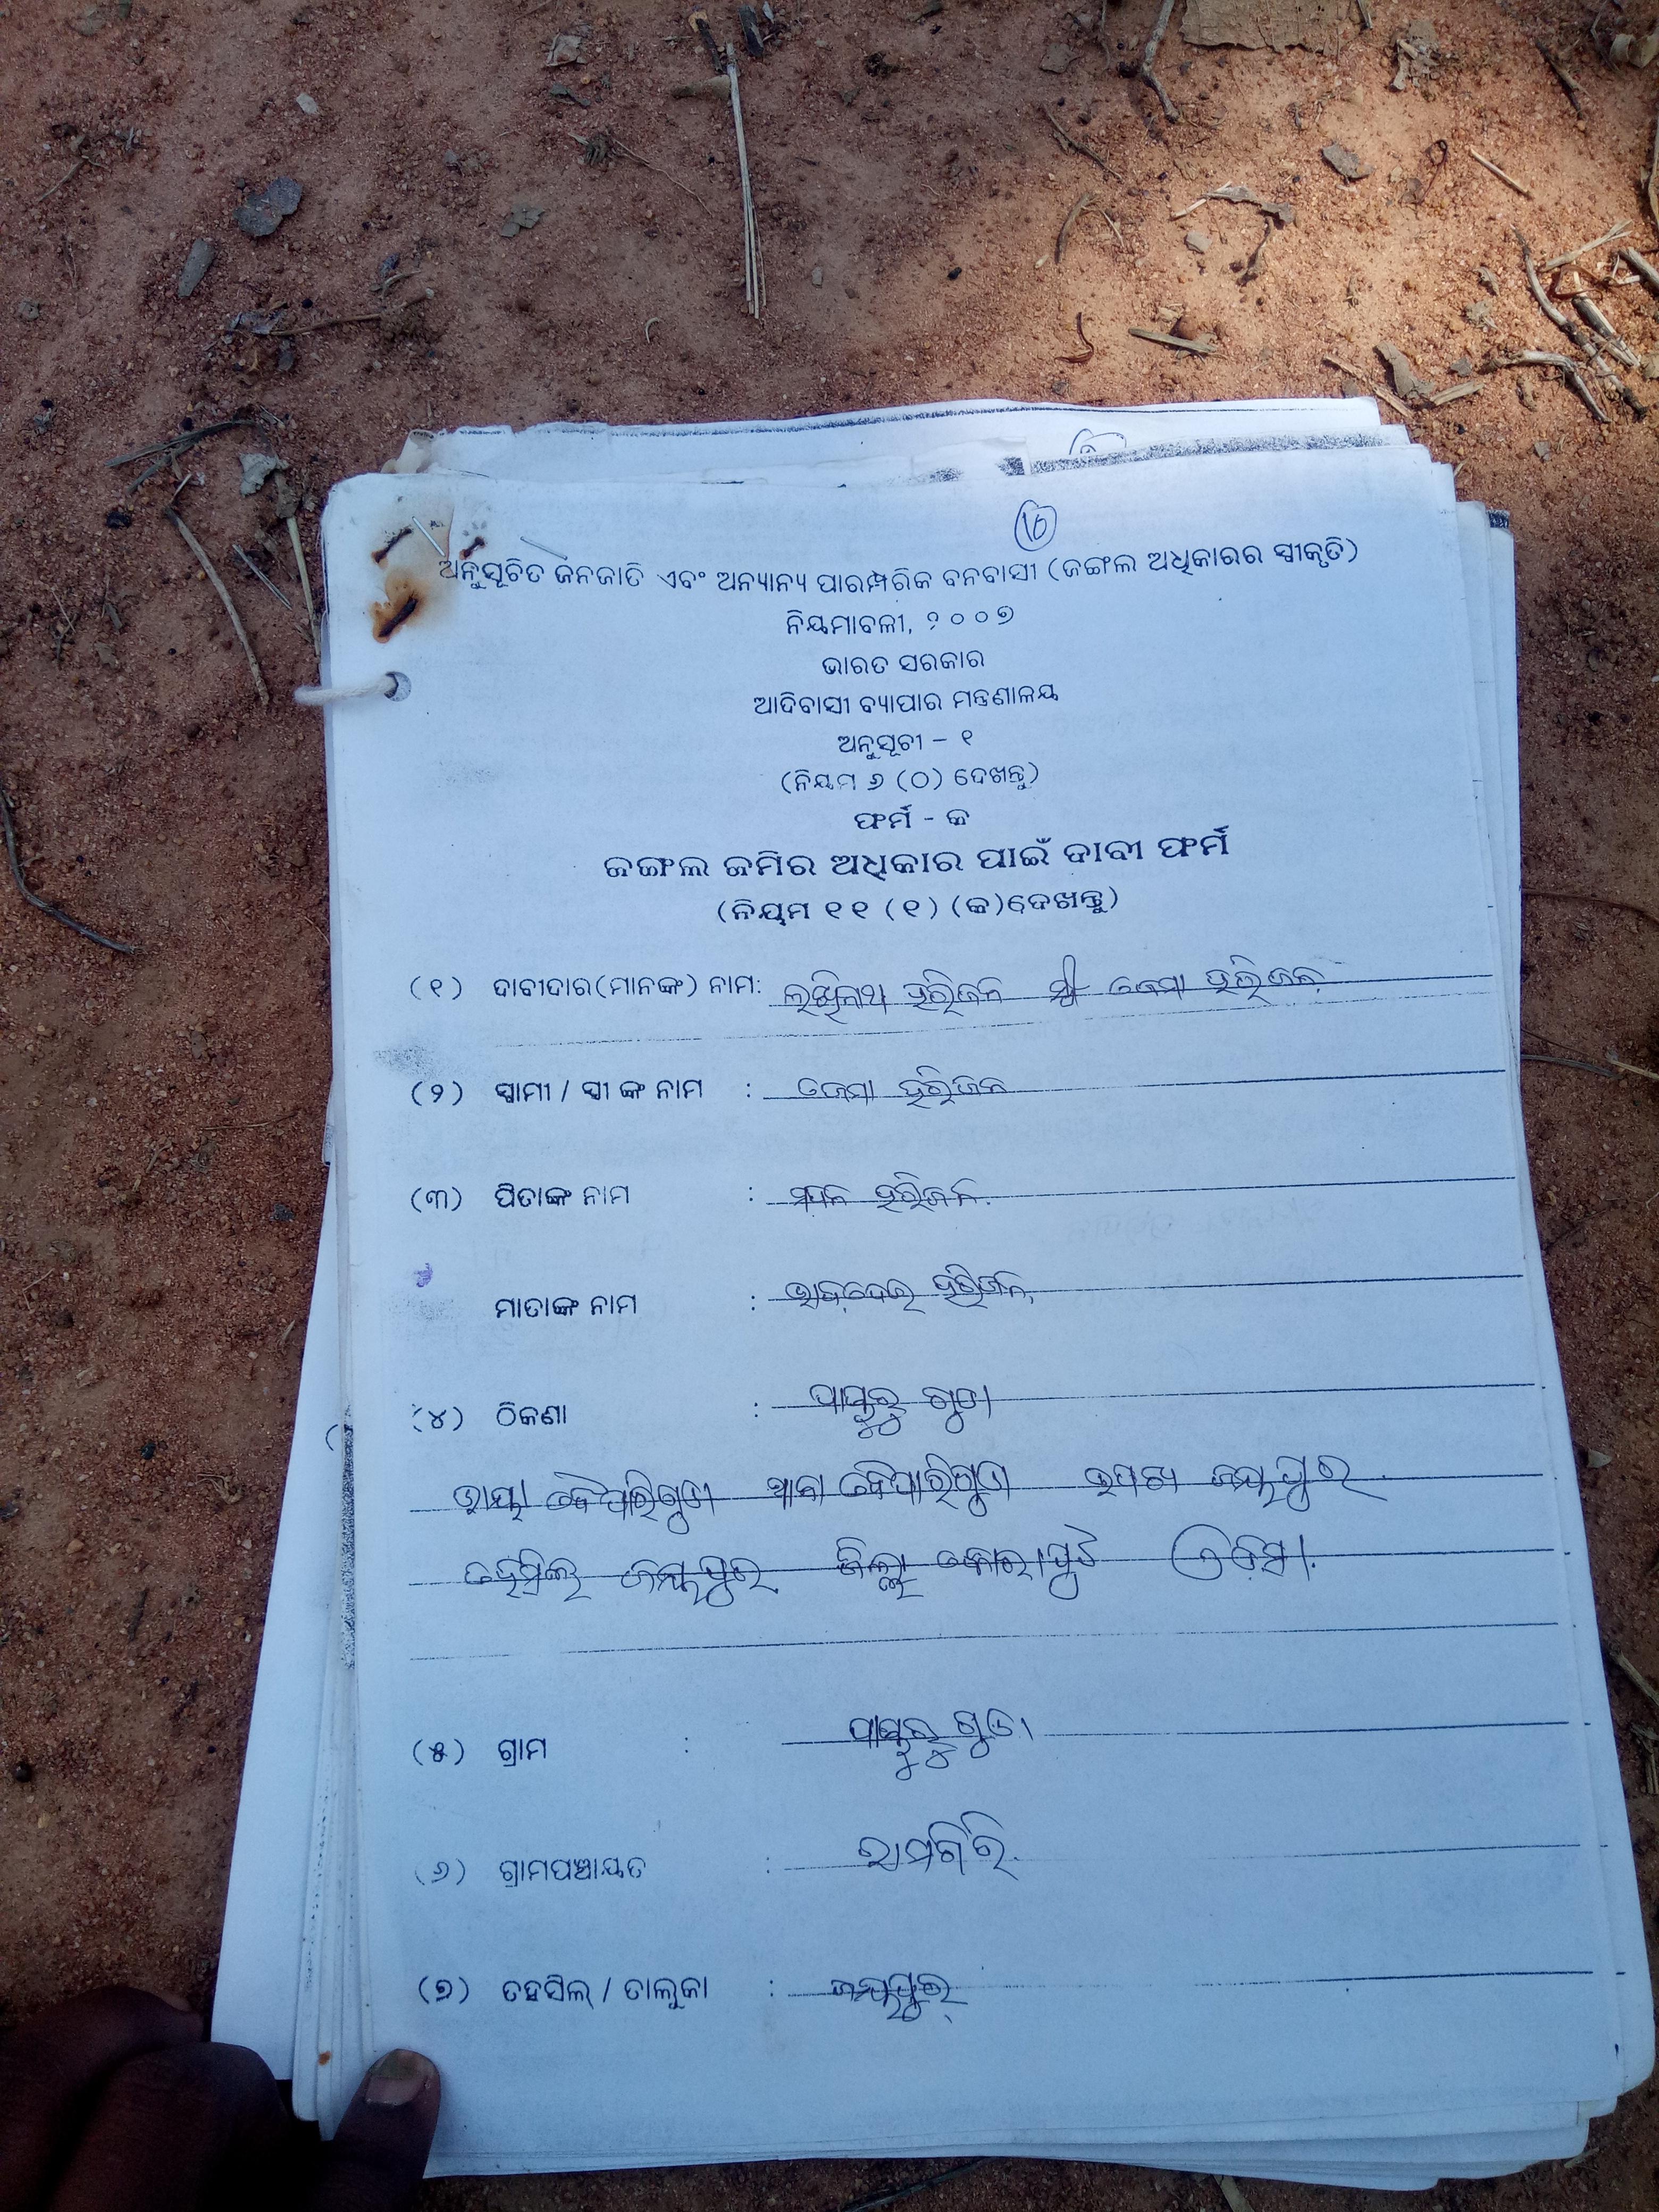 ୧୬
ଅନୁସୂଚିତ ଜନଜାତି ଏବଂ ଅନ୍ୟାନ୍ୟ ପାରମ୍ପରିକ ବନବାସୀ (ଜଙ୍ଗଲ ଅଧିକାରର ସ୍ୱୀକୃତି)
ନିୟମାବଳୀ, ୨୦୦୭
ଭାରତ ସରକାର
ଆଦିବାସୀ ବ୍ୟାପାର ମନ୍ତ୍ରଣାଳୟ
ଅନୁସୂଚୀ – ୧
(ନିୟମ ୬ (ଠ) ଦେଖନ୍ତୁ)
ଫର୍ମ - କ
ଜଙ୍ଗଲ ଜମିର ଅଧିକାର ପାଇଁ ଦାବୀ ଫର୍ମ
(ନିୟମ ୧୧ (୧) (କ) ଦେଖନ୍ତୁ)
(୧) ଦାବୀଦାର(ମାନଙ୍କ) ନାମ: ହରିଜନ ସ୍ତ୍ରୀ ଜେମା ହରିଜନ
(୨) ସ୍ୱାମୀ / ସ୍ତ୍ରୀ ଙ୍କ ନାମ : ଜେମା ହରିଜନ
(୩) ପିତାଙ୍କ ନାମ : ହରିଜନ
ମାତାଙ୍କ ନାମ : ହରିଜନ
(୪) ଠିକଣା : ଗୁଡା
ବୈପାରିଗୁଡା ଥାନା ବୈପାରିଗୁଡା ଜୟପୁର
ତହସିଲ ଜୟପୁର ଜିଲ୍ଲା କୋରାପୁଟ ଓଡିସା
(୫) ଗ୍ରାମ : ଗୁଡା
(୬) ଗ୍ରାମପଞ୍ଚାୟତ : ରାମଗିରି
(୭) ତହସିଲ୍ / ତାଲୁକା : ଜୟପୁର